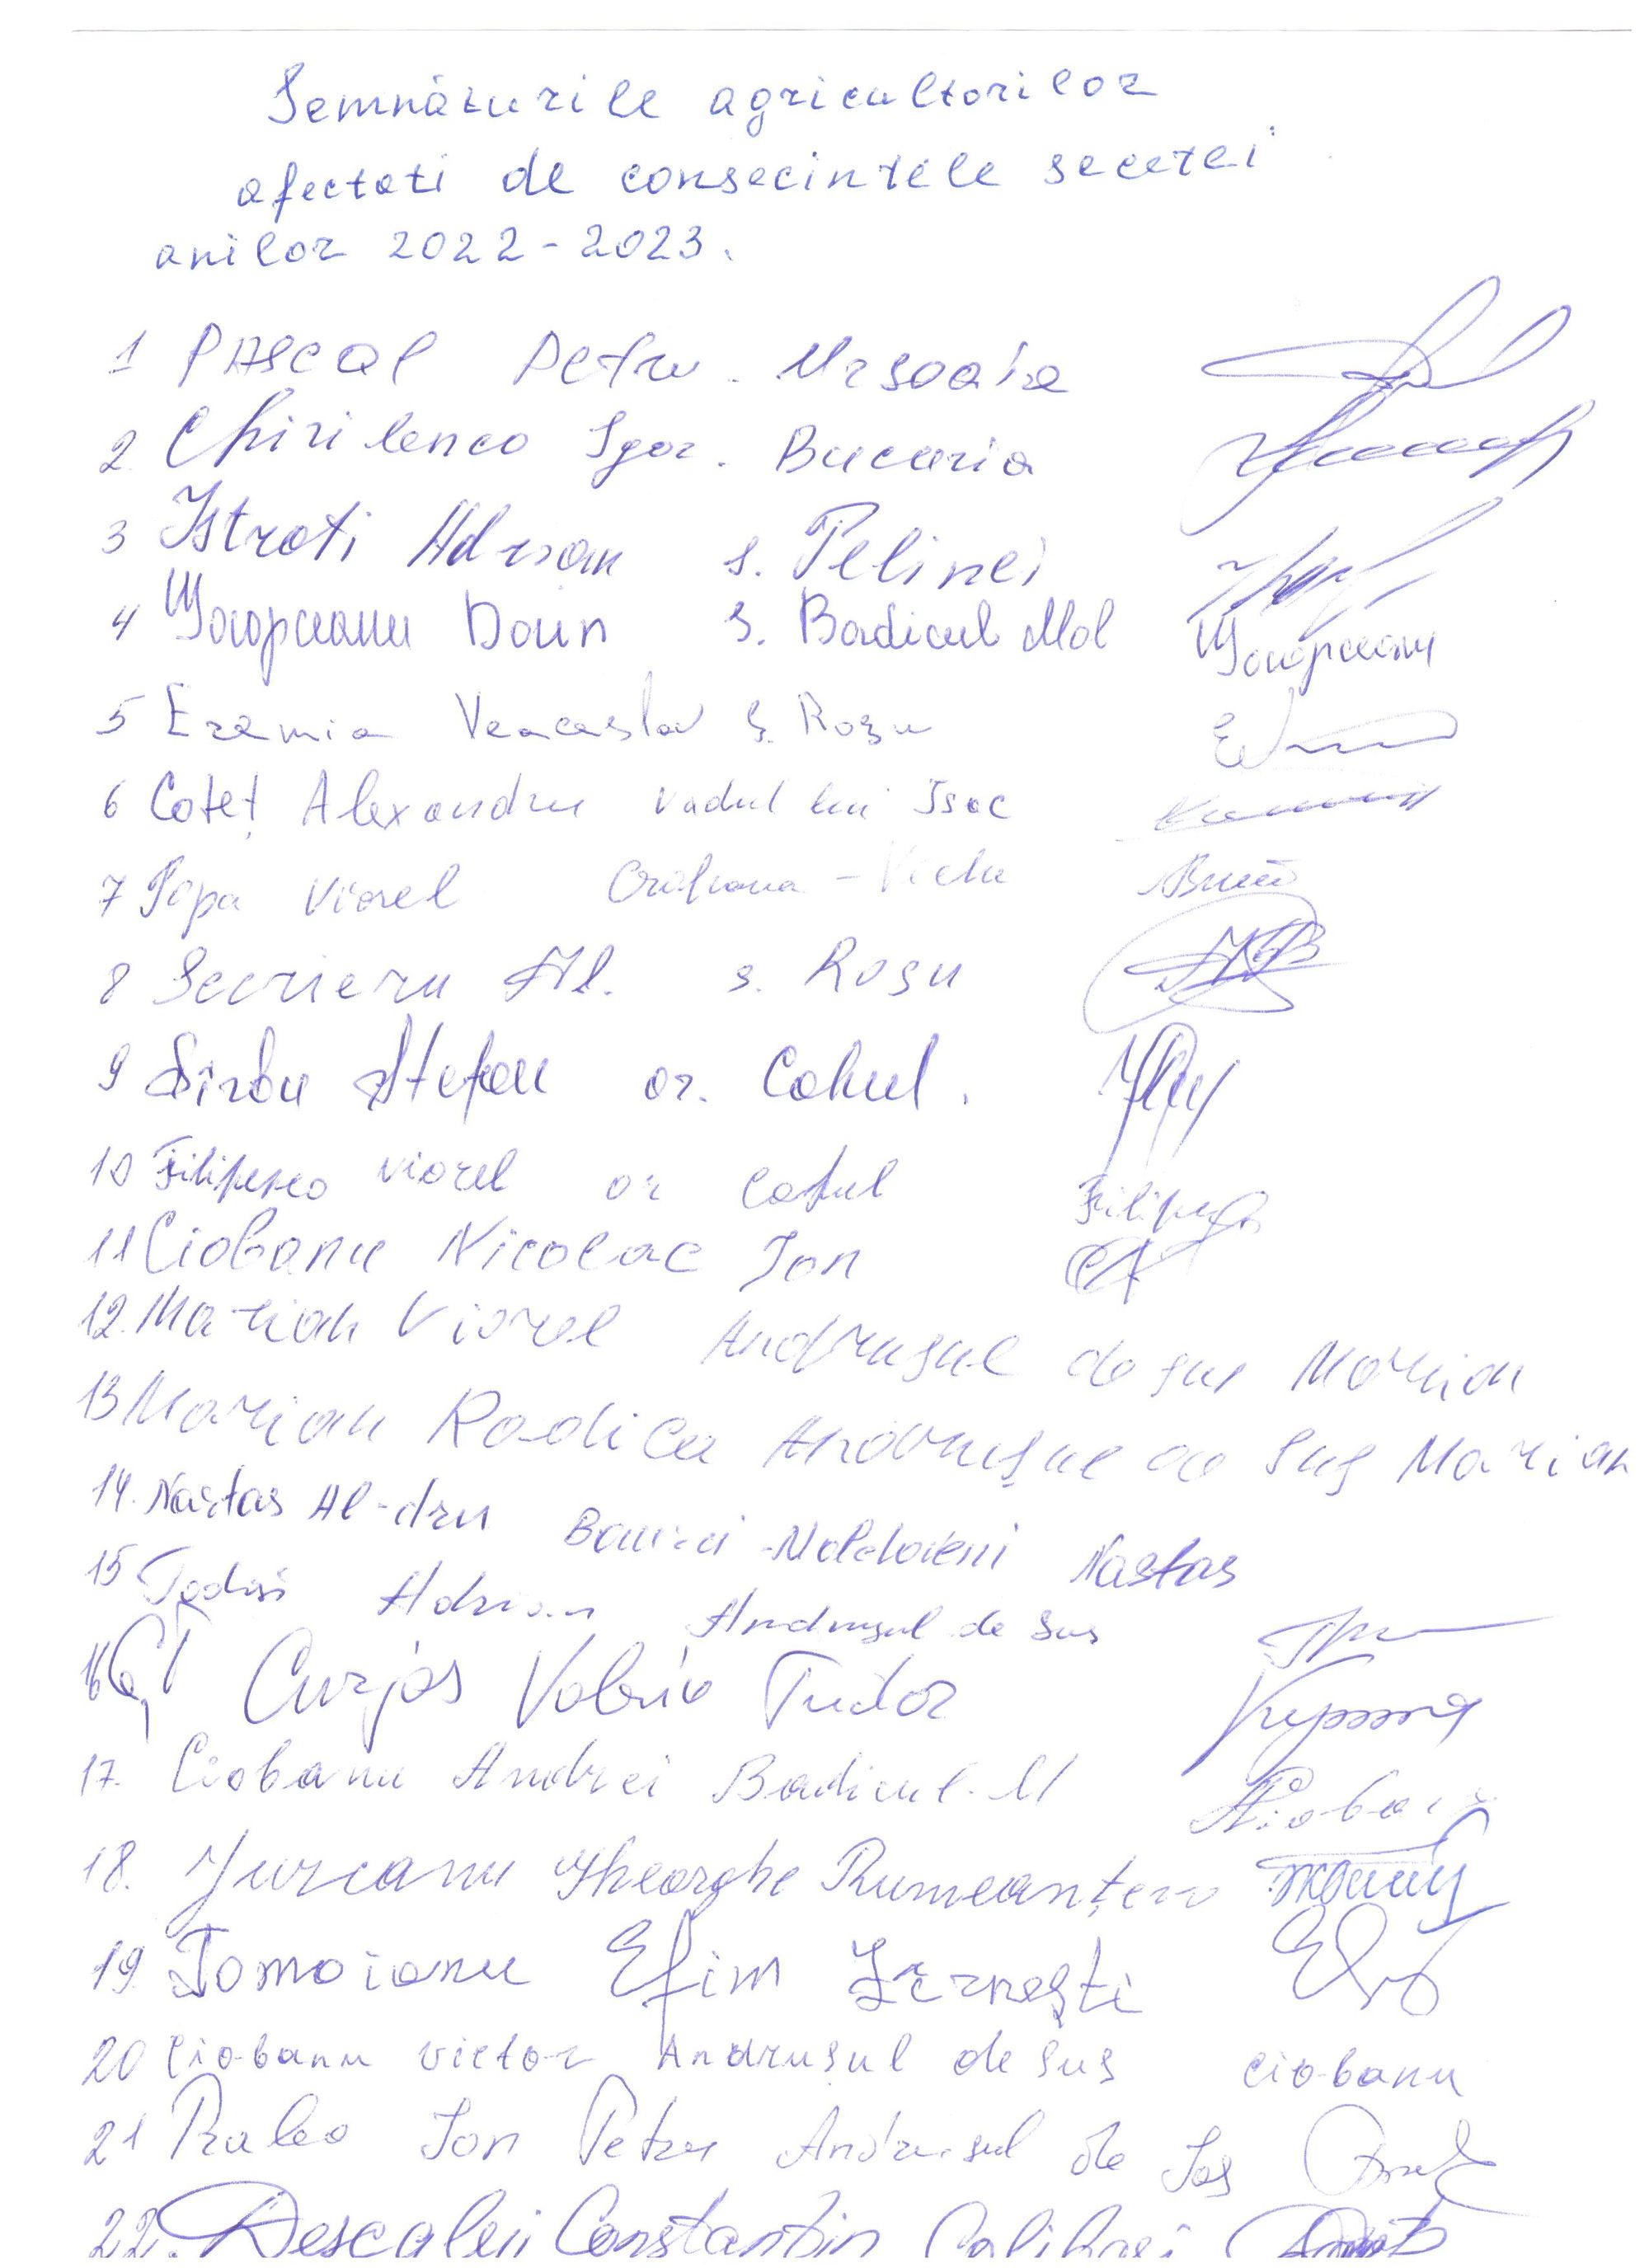 Semnăturile agricultorilor
afectati de consecintele secetei
anilor 2022-2023.
1 PAscal Petru. Ursoaia
2 Chirilenco Igor. Bucuria
3 Istrati Adrian s. Pelinei
4 Dorin s. Badicul Mol
5 Eremia Veaceslav s. Roșu
6 Coteț Alexandru Vadul lui Isac
7 Popa Viorel Crihana-Veche
8 Scrieru Al. s. Roșu
9 Sîrbu Ștefan or. Cahul.
10 Filipesco Viorel or Cahul Filip
11 Ciobanu Nicolae Ion
12. Marian Viorel Andrușul de sus Marian
13 Marian Rodica Andrușul de Sus Marian
14. Nastas Al-dru Baurci-Moldoveni Nastas
15 Todos Adrian Andrușul de Sus
16 Curjos Valeriu Tudor
17. Ciobanu Andrei Badicul. M
18. Jurcanu Gheorghe Rumeanțev
19 Tomoianu Efim Zîrnești
20 Ciobanu Victor Andrușul de Sus Ciobanu
21 Raleo Ion Petru Andrusul de Jos
22. Constantin